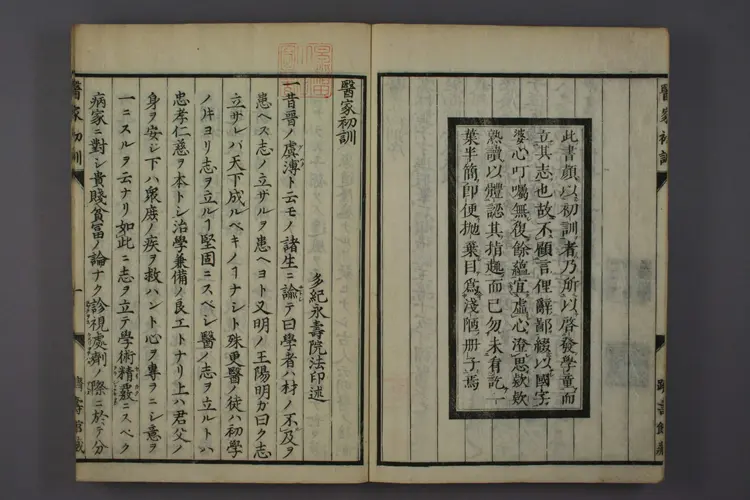 此書顏以初訓者乃所以啓發學童而
立其志也故不顧言俚辭鄙綴以國字
婆心叮囑無復餘蘊宜虛心澄思欸欸
熟讀以體認其指趣而已勿未看訖一
葉半簡印便抛葉目爲淺陋册子焉
醫家初訓
醫家初訓
多紀永壽院法印述
一昔晋ノ虞溥ト云モノ諸生ニ諭テ曰學者ハ材ノ不及ヲ
患ヘス志ノ立ザルヲ患ヘヨト又明ノ王陽明ガ曰ク志
立ザレバ天下成ルベキノヿナシト殊更醫ノ徒ハ初學
ノ片ヨリ志ヲ立ルヿ堅固ニスベシ醫ノ志ヲ立ルトハ
忠孝仁慈ヲ本トシ治學兼備ノ良工トナリ上ハ君父ノ
身ヲ安シ下ハ衆庶ノ疾ヲ救ハント心ヲ專ヲニシ意ヲ
一ニスルヲ云ナリ如此ニ志ヲ立テ學術精覈ニスベク
病家ニ對シ貴賤貧冨ノ論ナク診視處劑ノ際ニ於テ分
醫家初訓
一
躋壽館藏